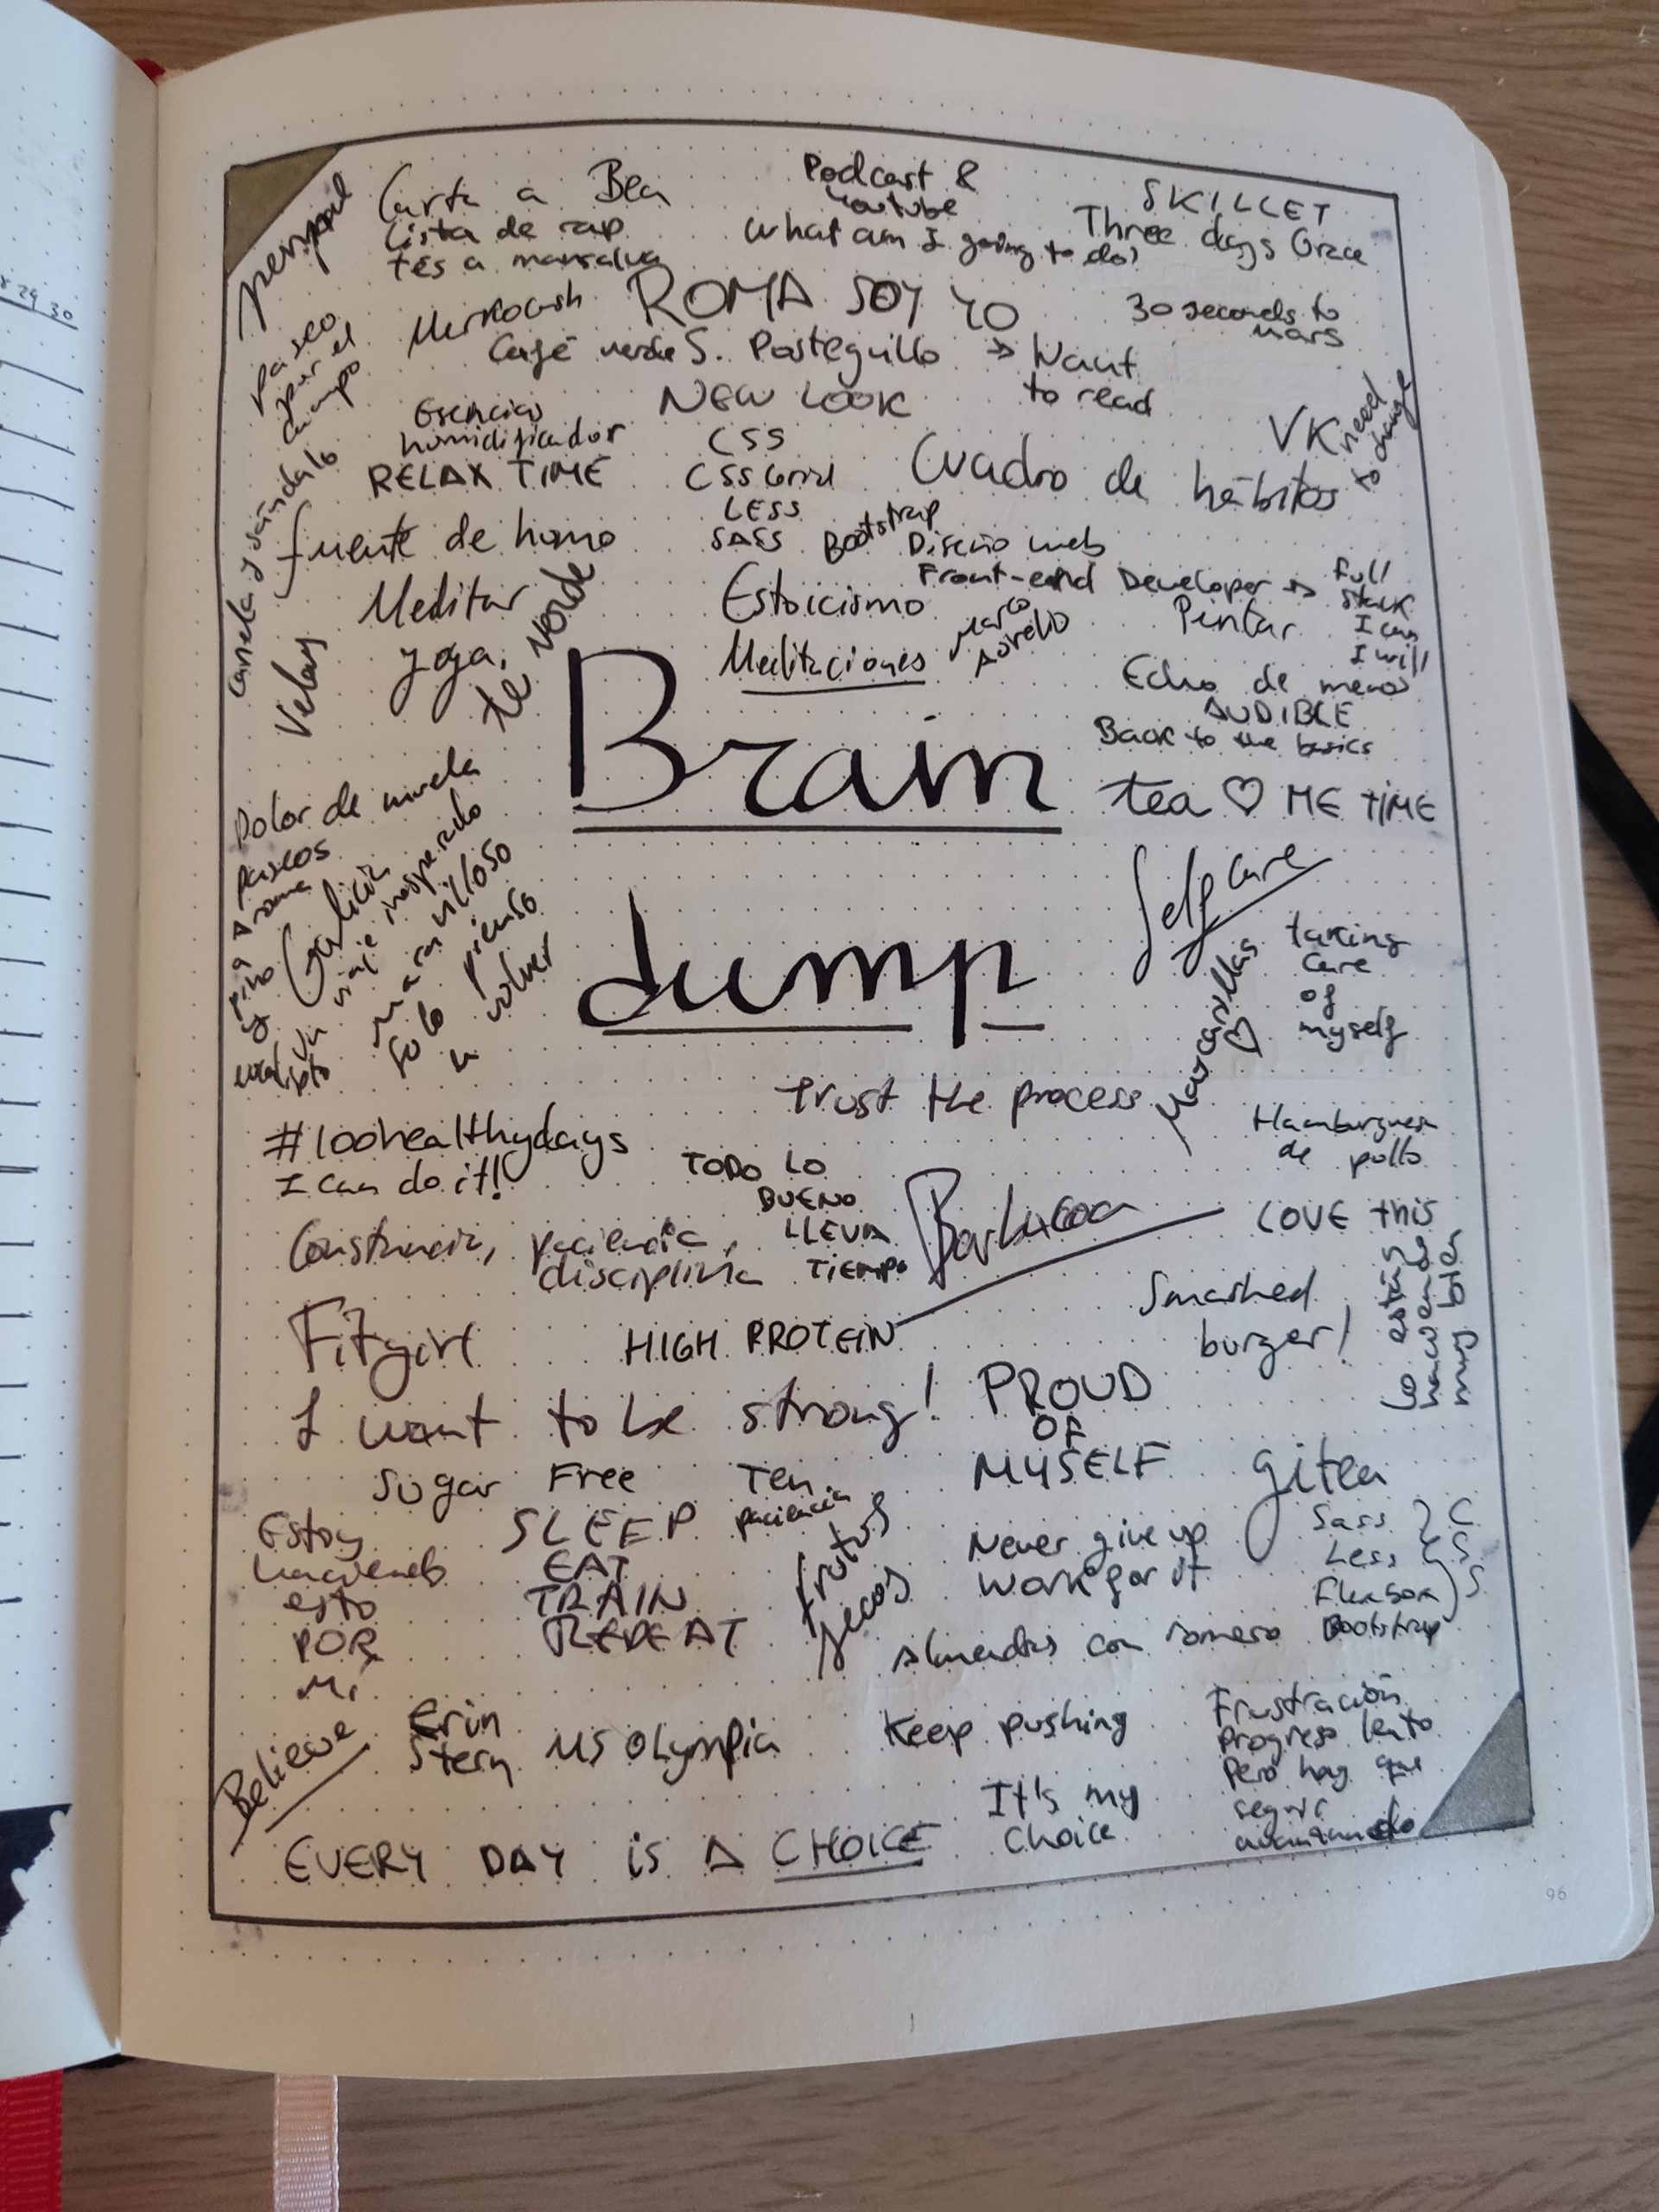 Carta a Bea
Lista de rap
tés a mansalva
Podcast &
Youtube
What am I going to do?
SKILLET
Three days Grace
30 seconds to
mars
paseo
por el
campo
ROMA SOY YO
Café verde S. Posteguillo → Want
to read
NEW LOOK
Esencias
humidificador
RELAX TIME
CSS
CSS Grid
LESS
SASS
Bootstrap
VK need
to change
Cuadro de hábitos
Canela y sándalo
fuente de humo
Diseño web
Front-end Developer → full
stack
I can
I will
Meditar
yoga,
té verde
Velas
Estoicismo
Meditaciones
Marco
Aurelio
Pintar
Echo de menos
AUDIBLE
Back to the basics
tea ♡ ME TIME
Brain
dump
Dolor de muela
paseos
Galicia
Un viaje inesperado
maravilloso
Solo pienso
en volver
A
pino
y
eucalipto
Self care
Mascarillas ♡
taking
care
of
myself
Trust the process
#100healthydays
I can do it!
TODO LO
BUENO
LLEVA
TIEMPO
Hamburguesa
de pollo
Constancia, paciencia,
disciplina
Barbacoa
LOVE this
Smashed
burger!
Lo estás
haciendo
muy bien
Fitgirl
HIGH PROTEIN
I want to be strong!
PROUD
OF
MYSELF
Sugar Free
Ten
paciencia
gitea
Sass
Less
Flexbox
Bootstrap
CSS
Estoy
haciendo
esto
POR
Mí
SLEEP
EAT
TRAIN
REPEAT
frutos
secos
Never give up
Work for it
Almendras con romero
Believe
Erin
Stern
MS Olympia
Keep pushing
Frustración
Progreso lento
Pero hay que
seguir
avanzando
It's my
choice
EVERY DAY is A CHOICE
96